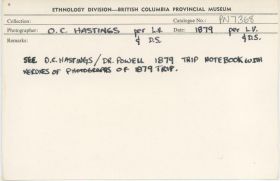 ETHNOLOGY DIVISION—BRITISH COLUMBIA PROVINCIAL MUSEUM
Collection: Catalogue No.: PN7368
Photographer: O.C. HASTINGS per L.V. Date: 1879 per L.V.
Remarks: & D.S. & D.S.
SEE O.C. HASTINGS/DR. POWELL 1879 TRIP NOTEBOOK WITH
XEROXES OF PHOTOGRAPHS OF 1879 TRIP.